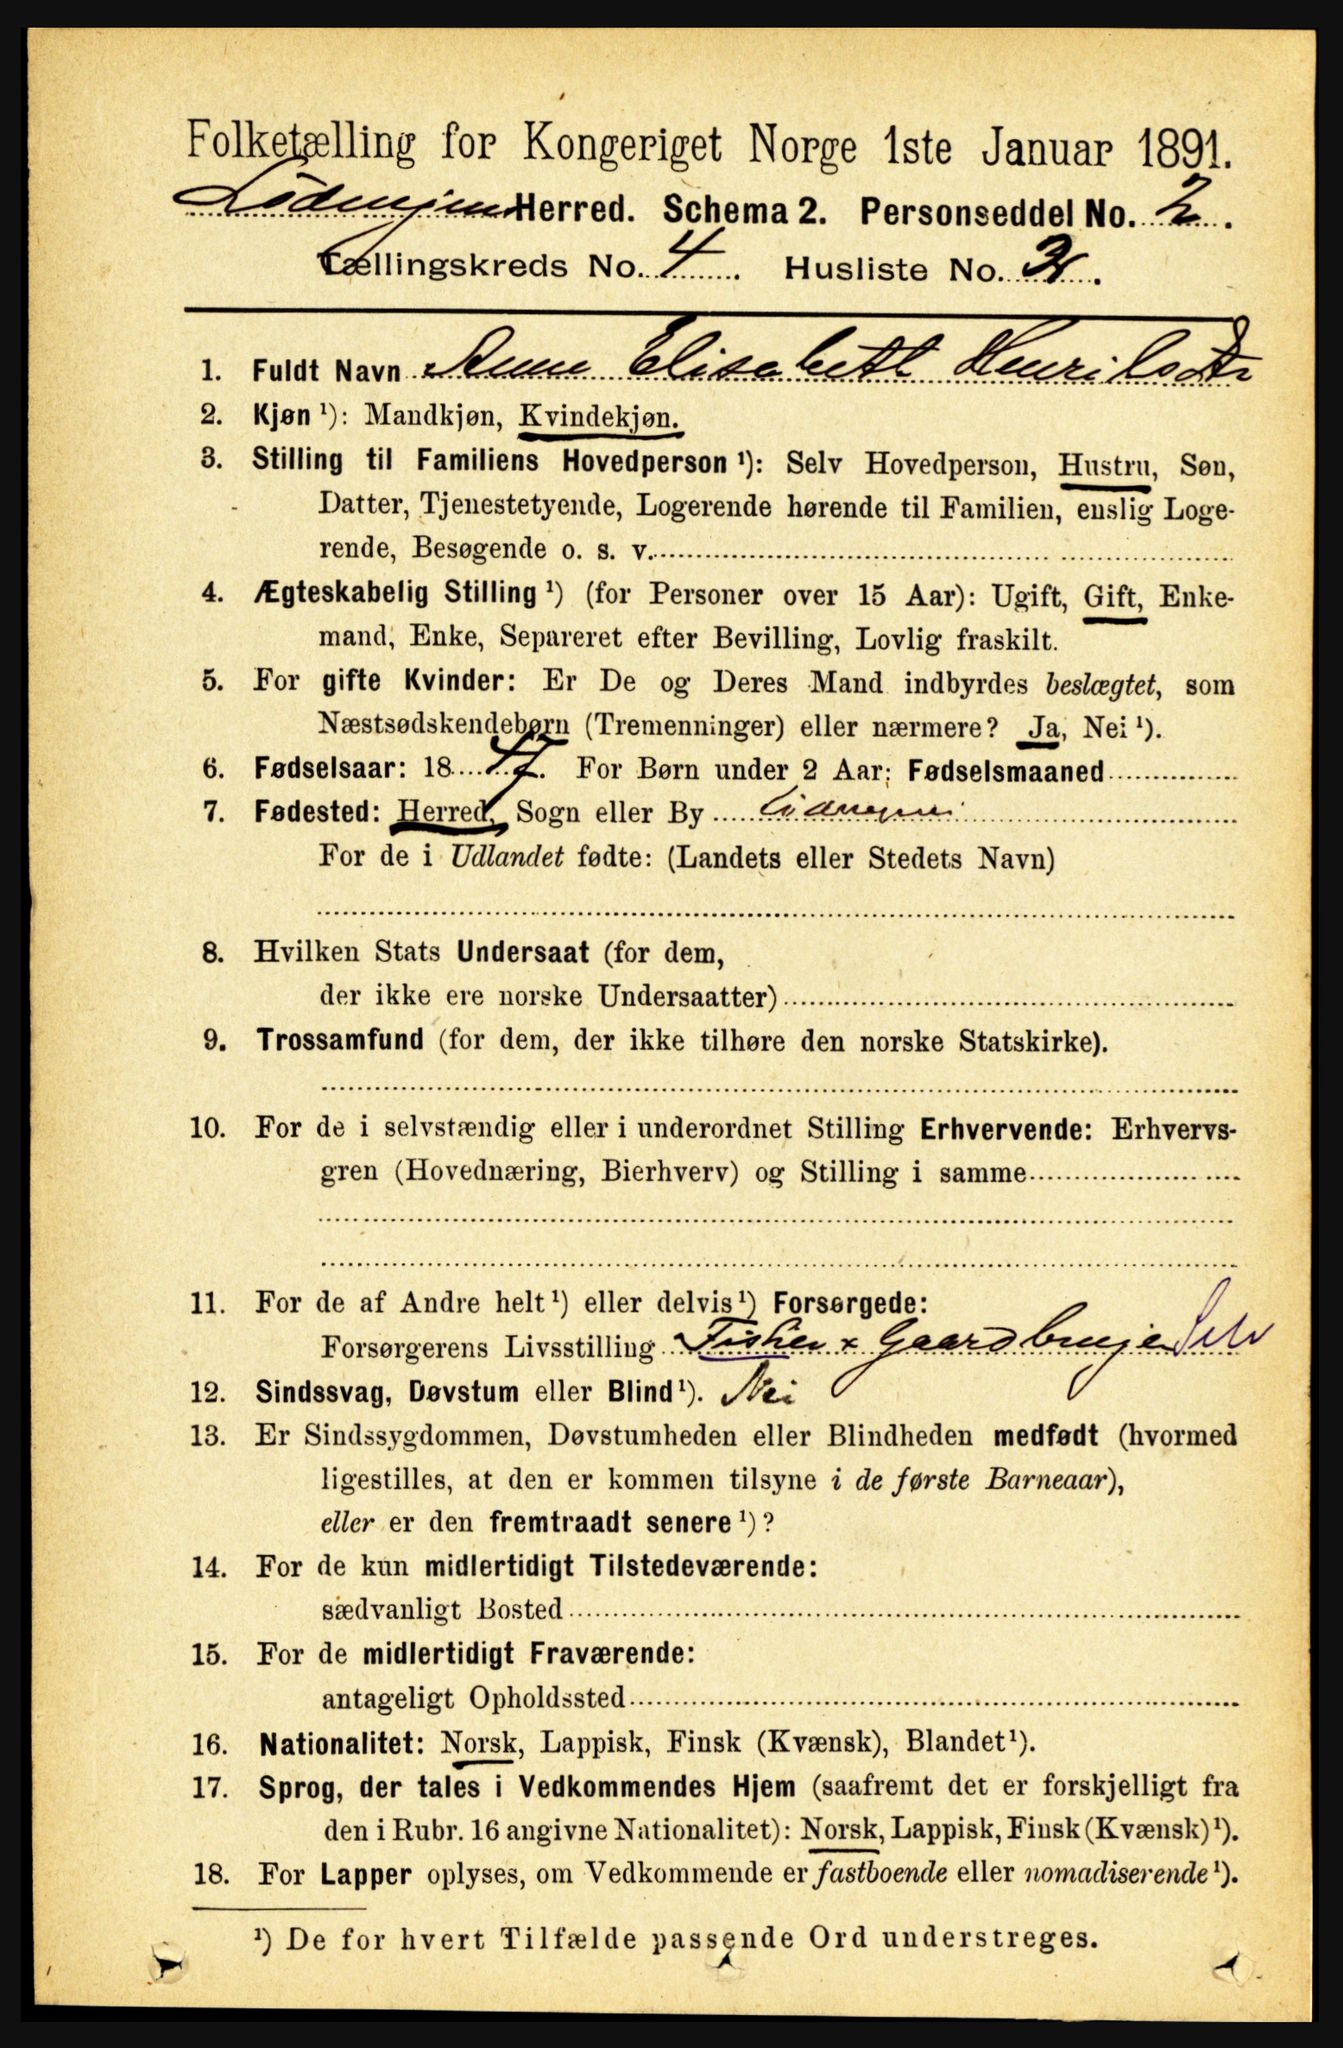 Folketælling for Kongeriget Norge 1ste Januar 1891.
Lødingen Herred. Schema 2. Personseddel No. 2.
Tællingskreds No. 4. Husliste No. 3.
1. Fuldt Navn Anne Elisabeth Henriksdtr
2. Kjøn ¹): Mandkjøn, Kvindekjøn.
3. Stilling til Familiens Hovedperson ¹): Selv Hovedperson, Hustru, Søn,
Datter, Tjenestetyende, Logerende hørende til Familien, enslig Loge-
rende, Besøgende o. s. v.
4. Ægteskabelig Stilling ¹) (for Personer over 15 Aar): Ugift, Gift, Enke-
mand, Enke, Separeret efter Bevilling, Lovlig fraskilt.
5. For gifte Kvinder: Er De og Deres Mand indbyrdes beslægtet, som
Næstsødskendebørn (Tremenninger) eller nærmere? Ja, Nei ¹).
6. Fødselsaar: 1847. For Børn under 2 Aar: Fødselsmaaned
7. Fødested: Herred, Sogn eller By Lødingen
For de i Udlandet fødte: (Landets eller Stedets Navn)
8. Hvilken Stats Undersaat (for dem,
der ikke ere norske Undersaatter)
9. Trossamfund (for dem, der ikke tilhøre den norske Statskirke).
10. For de i selvstændig eller i underordnet Stilling Erhvervende: Erhvervs-
gren (Hovednæring, Bierhverv) og Stilling i samme
11. For de af Andre helt ¹) eller delvis ¹) Forsørgede:
Forsørgerens Livsstilling Fisker x Gaardbruger Selv
12. Sindssvag, Døvstum eller Blind ¹). Nei
13. Er Sindssygdommen, Døvstumheden eller Blindheden medfødt (hvormed
ligestilles, at den er kommen tilsyne i de første Barneaar),
eller er den fremtraadt senere ¹)?
14. For de kun midlertidigt Tilstedeværende:
sædvanligt Bosted
15. For de midlertidigt Fraværende:
antageligt Opholdssted
16. Nationalitet: Norsk, Lappisk, Finsk (Kvænsk), Blandet ¹).
17. Sprog, der tales i Vedkommendes Hjem (saafremt det er forskjelligt fra
den i Rubr. 16 angivne Nationalitet): Norsk, Lappisk, Finsk (Kvænsk) ¹).
18. For Lapper oplyses, om Vedkommende er fastboende eller nomadiserende ¹).
¹) De for hvert Tilfælde passende Ord understreges.